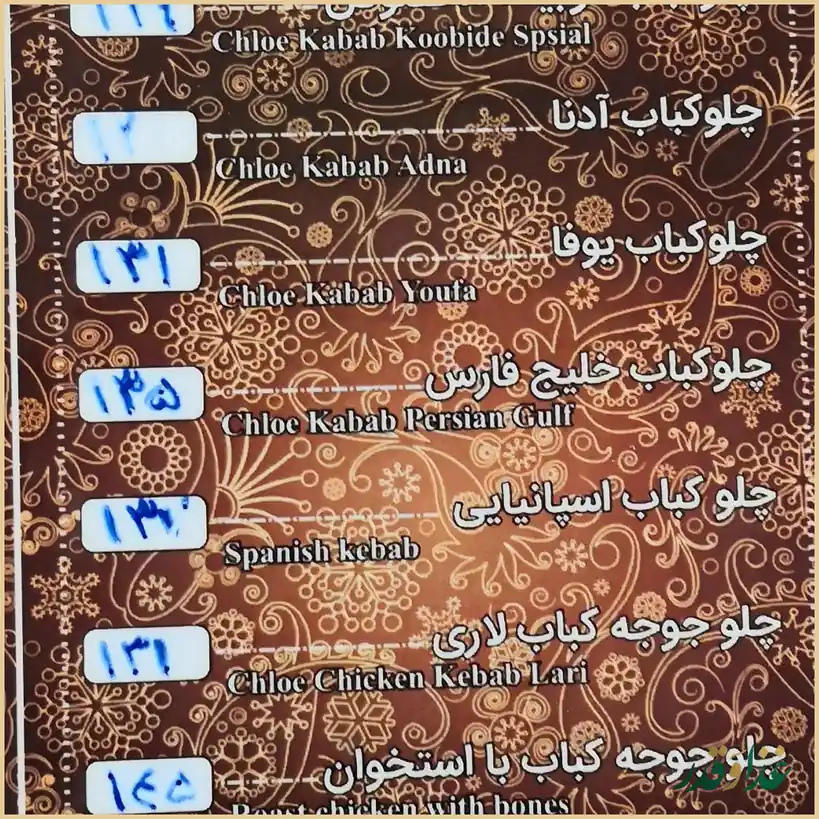 Chloe Kabab Koobide Spsial
چلوکباب آدنا
Chloe Kabab Adna
چلوکباب یوفا ۱۳۱
Chloe Kabab Youfa
چلوکباب خلیج فارس ۱۳۵
Chloe Kabab Persian Gulf
چلو کباب اسپانیایی
Spanish kebab
چلو جوجه کباب لاری ۱۳۱
Chloe Chicken Kebab Lari
چلو جوجه کباب با استخوان ۱۴۵
Roast chicken with bones